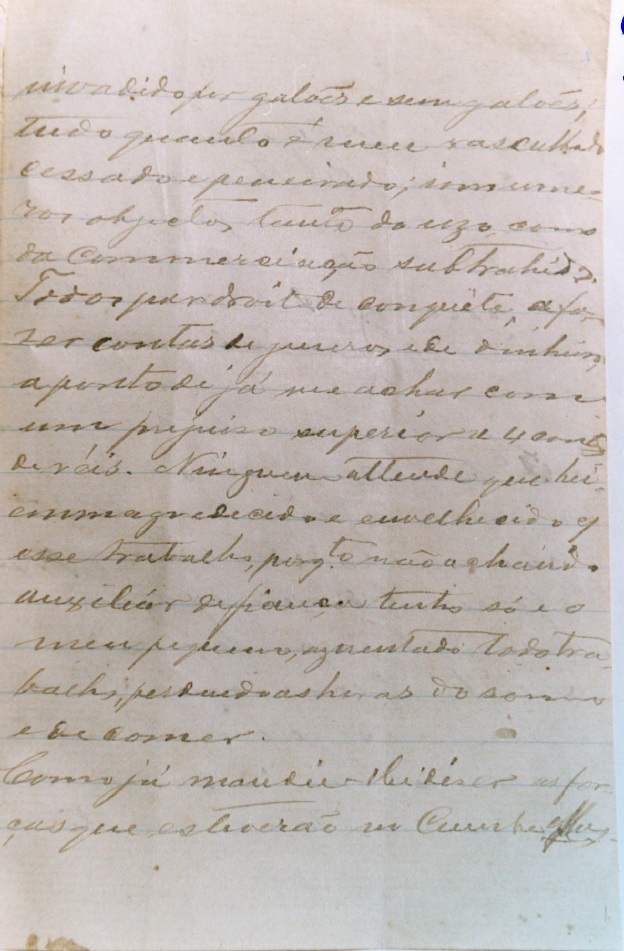 invadido por galoẽs e sem galoẽs,
tudo quanto é meu vasculhado
cessado e peneirado; innume-
ros objectos tanto do uzo, como
da commerciação subtrahidos.
Todos par droit de conquête, a fa-
zer contas de generos e de dinheiro,
a ponto de já me achar com
um prejuiso superior a 4 contos
de réis. Ninguem attende que hei
emmagrecido e envelhecido
esse trabalho, porqto não achando
auxiliár de fiança tenho só e o
meu pequeno, aguentado todo tra
balho, perdendo as horas do somno
e de comer.
Como já mandei-lhe dizer as for-
ças que estiverão no